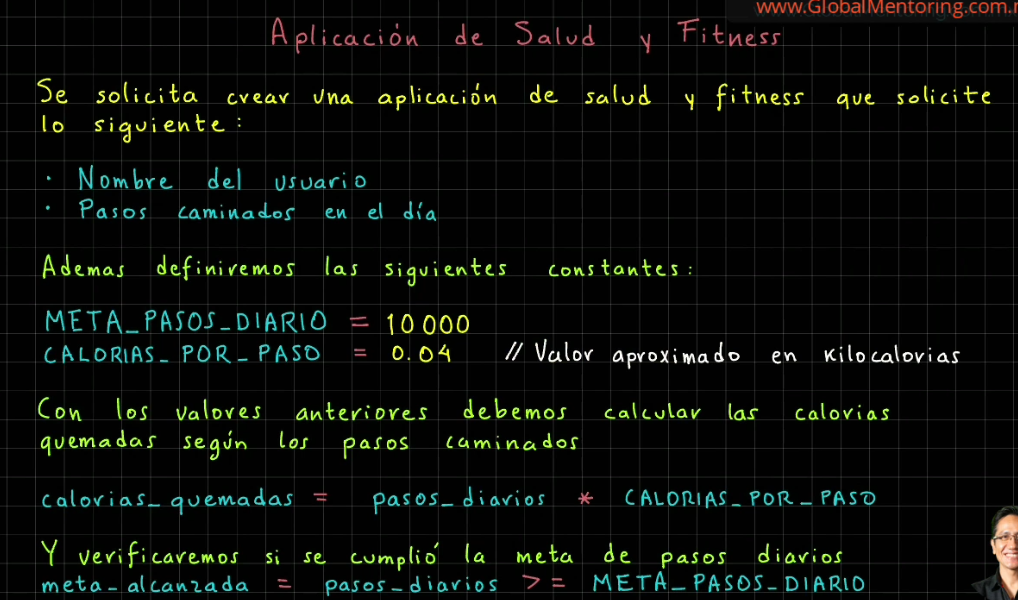 www.GlobalMentoring.com.m
Aplicación de Salud y Fitness
Se solicita crear una aplicación de salud y fitness que solicite
lo siguiente:
· Nombre del usuario
· Pasos caminados en el día
Ademas definiremos las siguientes constantes:
META_PASOS_DIARIO = 10000
CALORIAS_POR_PASO = 0.04 // Valor aproximado en kilocalorias
Con los valores anteriores debemos calcular las calorias
quemadas según los pasos caminados
calorias_quemadas = pasos_diarios * CALORIAS_POR_PASO
Y verificaremos si se cumplió la meta de pasos diarios
meta_alcanzada = pasos_diarios >= META_PASOS_DIARIO